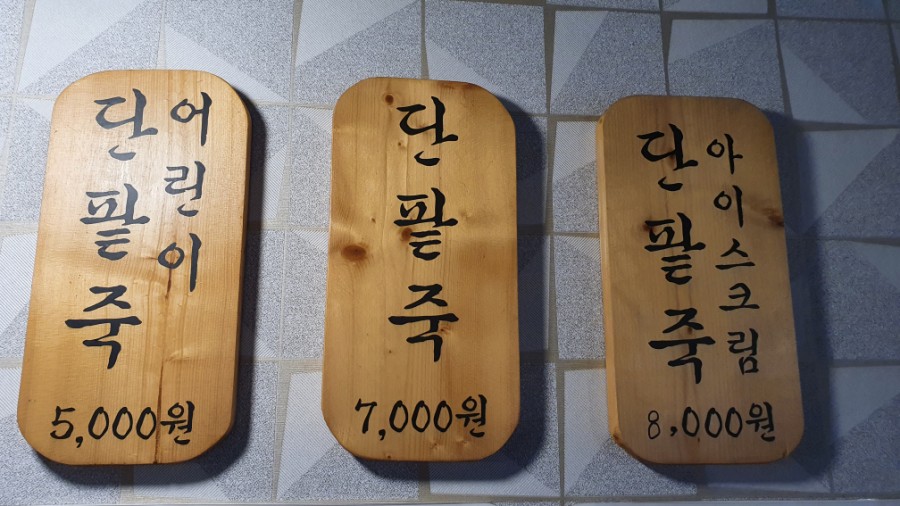 어린이
단팥죽
5,000원
단팥죽
7,000원
아이스크림
단팥죽
8,000원